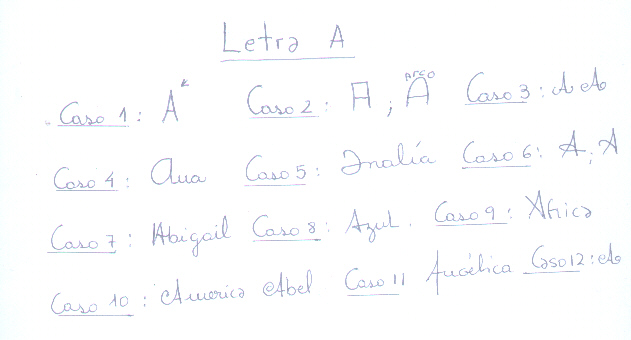 Letra A
Caso 1: A Caso 2: A ; A arco Caso 3: A A
Caso 4: Ana Caso 5: Analía Caso 6: A, A
Caso 7: Abigail Caso 8: Azul. Caso 9: Africa
Caso 10: America Abel Caso 11 Angélica Caso 12: A